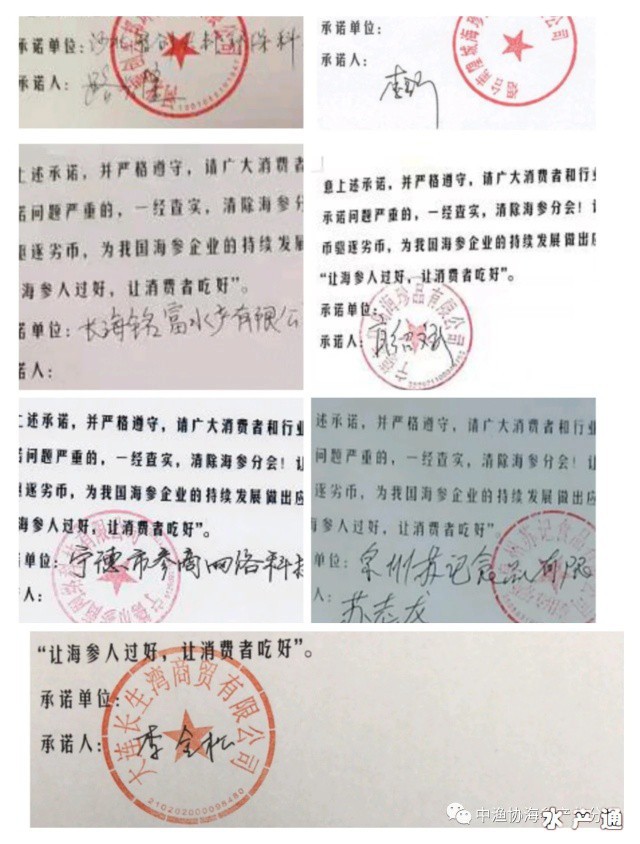 承诺单位：
承诺人：
承诺单位：
承诺人：
上述承诺，并严格遵守，请广大消费者
诺问题严重的，一经查实，清除海参分
驱逐劣币，为我国海参企业的持续发展
海参人过好，让消费者吃好”。
诺单位：长海铭富水产有限公
诺人：
意上述承诺，并严格遵守，请广大消费者和行业
承诺问题严重的，一经查实，清除海参分会！让
币驱逐劣币，为我国海参企业的持续发展做出应
“让海参人过好，让消费者吃好”。
承诺单位：
承诺人：
上述承诺，并严格遵守，请广大消费者和行业
诺问题严重的，一经查实，清除海参分会！让
驱逐劣币，为我国海参企业的持续发展做出应
海参人过好，让消费者吃好”。
单位：宁德市参商网络科技
人：
述承诺，并严格遵守，请广大消费者和行业
问题严重的，一经查实，清除海参分会！让
逐劣币，为我国海参企业的持续发展做出应
参人过好，让消费者吃好”。
单位：泉州苏记食品有限
人：苏志龙
“让海参人过好，让消费者吃好”。
承诺单位：
承诺人：李全松
大连长生湾商贸有限公司
21020200098480
中渔协海
水产通